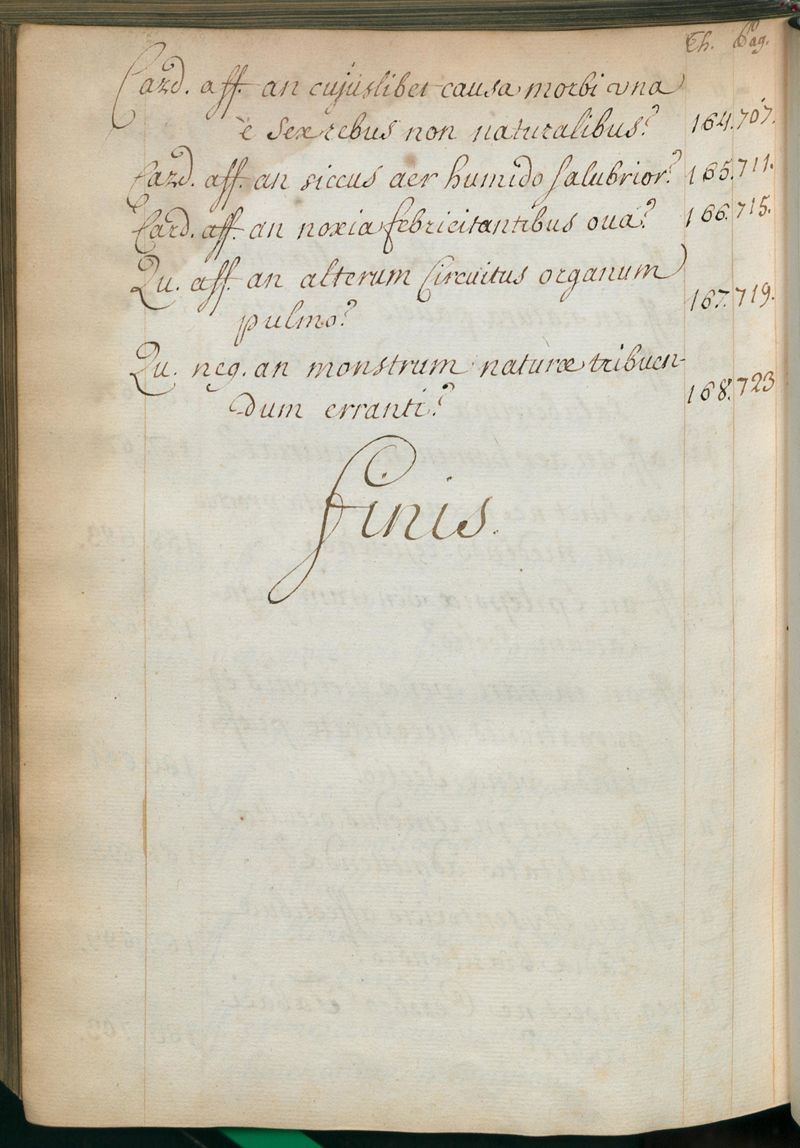 Th. Pag.
Card. aff. an cujuslibet causa morbi una
è sex rebus non naturalibus? 164. 707.
Card. aff. an siccus aer humido salubrior? 165. 711.
Card. aff. an noxia febricitantibus ova? 166. 715.
Qu. aff. an alterum Circuitus organum
pulmo? 167. 719.
Qu. neg. an monstrum naturæ tribuen-
dum erranti? 168. 723
finis.